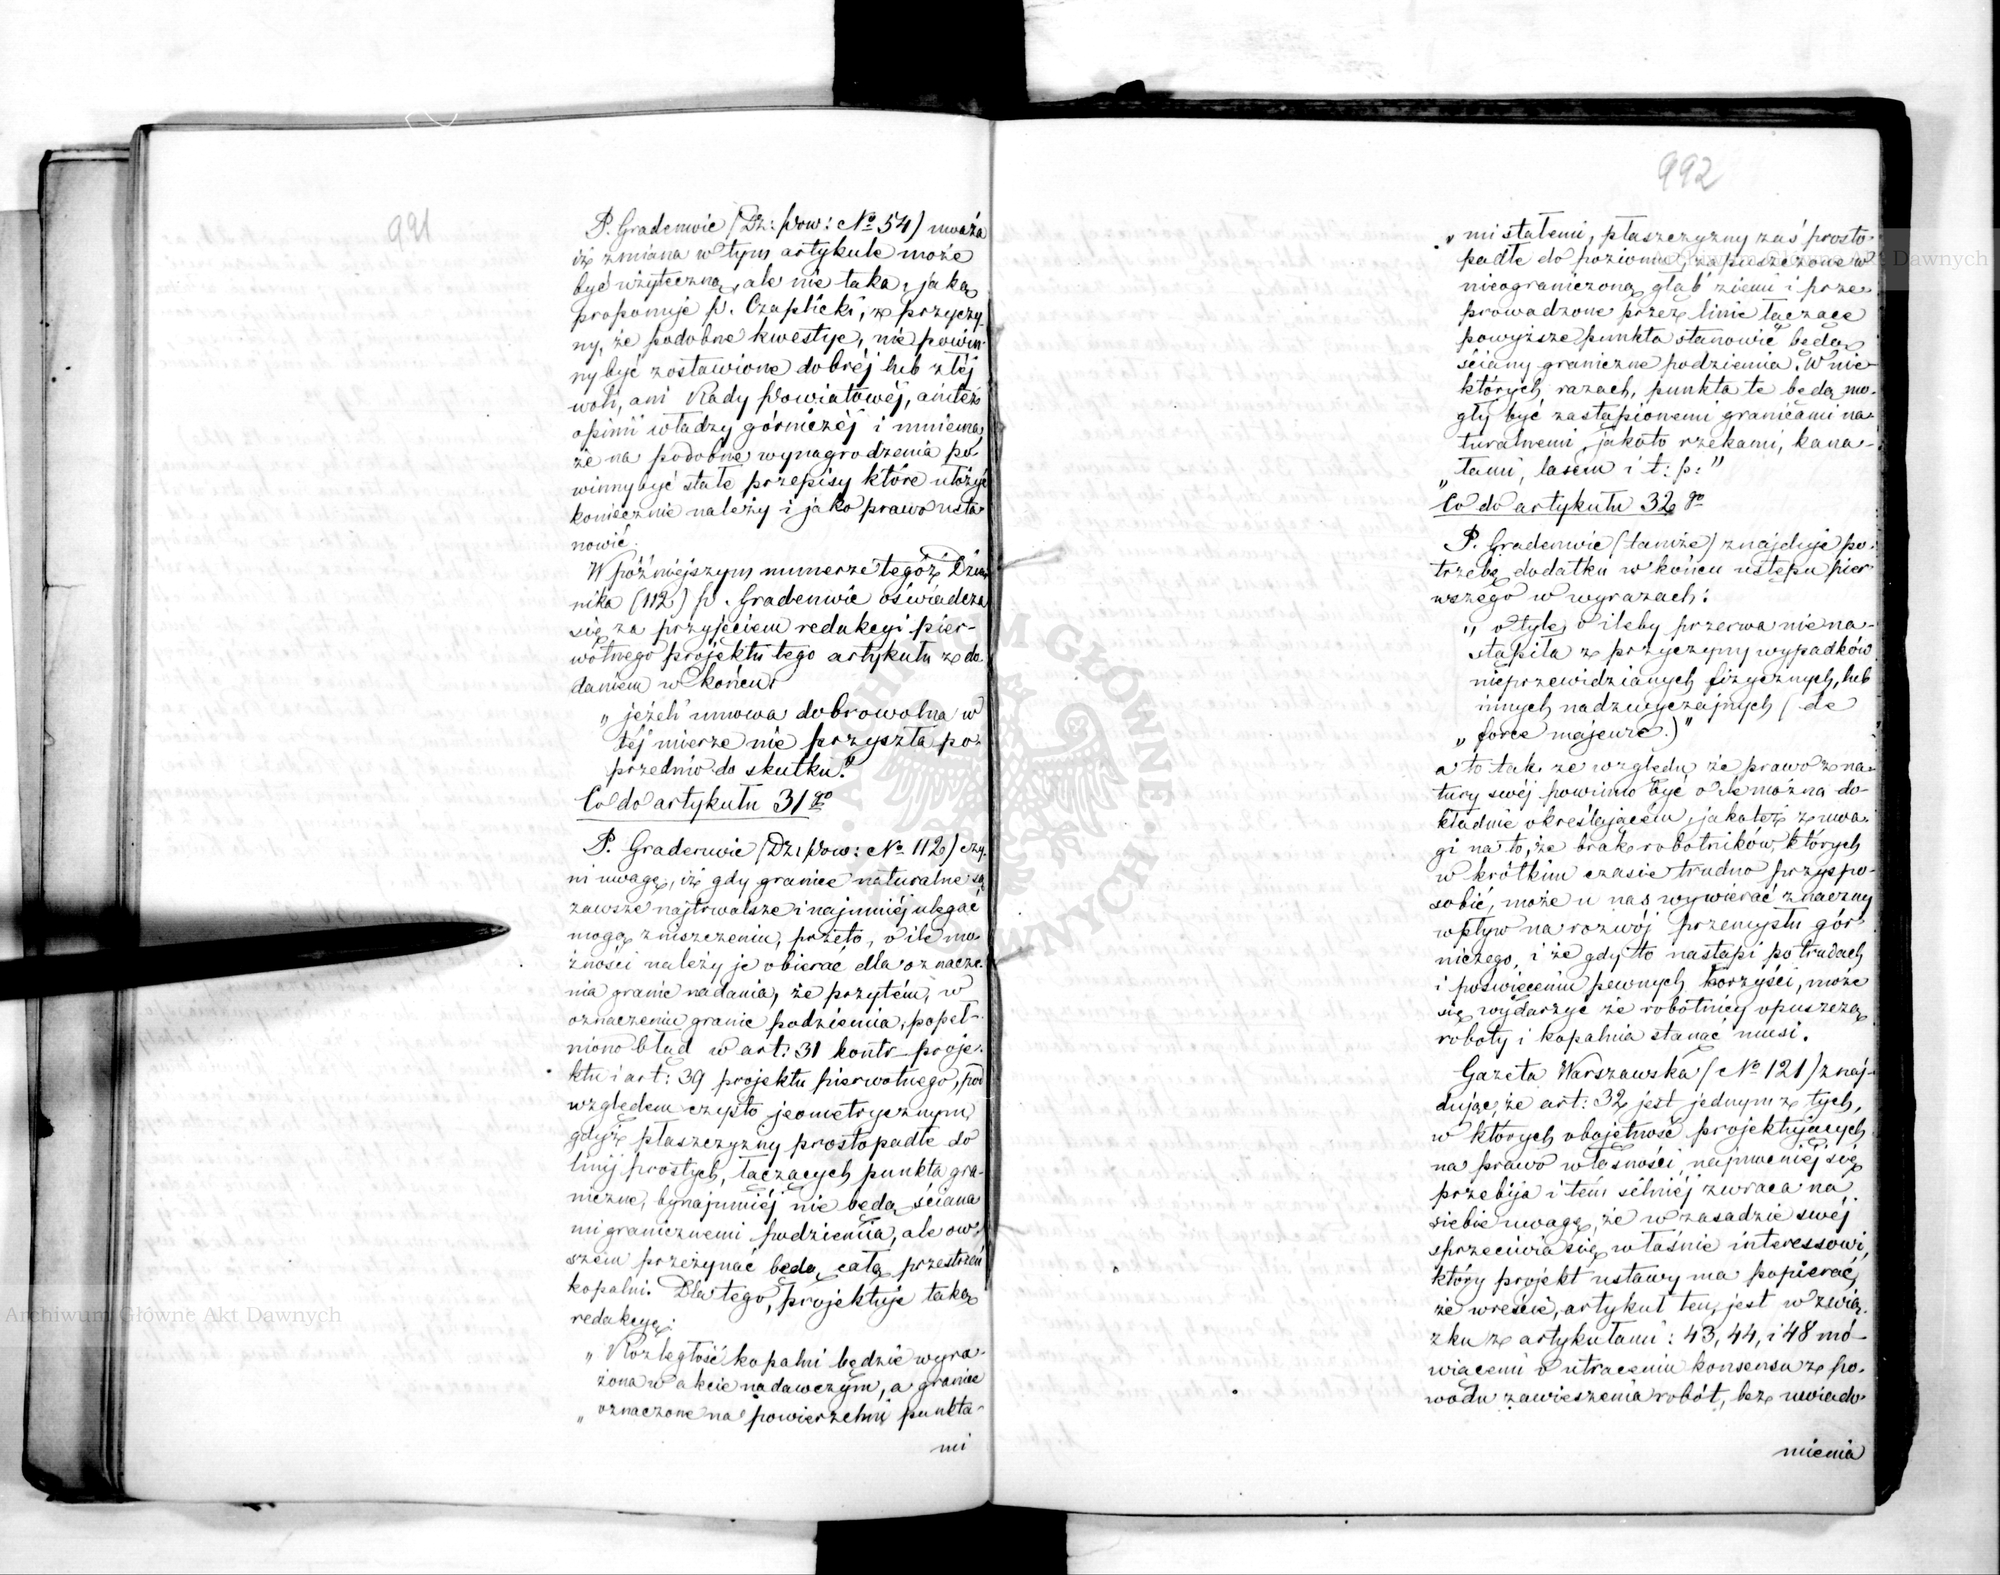 991
P. Gradenwic (Dz: Pow: No 54) uważa
iż zmiana w tym artykule może
być użyteczną, ale nie taka, jaką
proponuje p. Czaplicki, z przyczy-
ny, że podobne kwestye, nie powin-
ny być zostawione dobréj lub złéj
woli, ani Rady Powiatowéj, anitéż
opinii władzy górniczéj i mniema,
że na podobne wynagrodzenia po-
winny być stałe przepisy które ułożyć
koniecznie należy i jako prawo usta-
nowić.
W późniejszym numerze tegóż Dzien-
nika (112) p. Gradenwic oświadcza
się za przyjęciem redakcyi pier-
wotnego projektu tego artykułu z do-
daniem w końcu:
„jeżeli umowa dobrowolna w
téj mierze nie przyszła po-
przednio do skutku."
Co do artykułu 31go
P. Gradenwic (Dz: Pow: No 112) czy-
ni uwagę, iż gdy granice naturalne są
zawsze najtrwalsze i najmniéj ulegać
mogą zniszczeniu, przeto, o ile mo-
żności należy je obierać dla oznacze-
nia granic nadania, że przytém, w
oznaczeniu granic podziemia, popeł-
niono błąd w art: 31 kontr-proje-
ktu i art: 39 projektu pierwotnego, pod
względem czysto jeometrycznym,
gdyż płaszczyzny prostopadłe do
linij prostych, łączących punkta gra-
niczne, bynajmniéj nie będą ściana-
mi granicznemi podziemia, ale ow-
szem przeżynać będą całą przestrzeń
kopalni. Dla tego, projektuje taką
redakcyę:
„Rozległość kopalni będzie wyra-
żona w akcie nadawczym, a granice
„oznaczone na powierzchni punkta-
mi
992
„mi stałemi, płaszczyzny zaś prosto-
padłe do poziomu, zapuszczone w
nieograniczoną głąb ziemi i prze-
prowadzone przez linie łączące
powyższe punkta stanowić będą
ściany graniczne podziemia. W nie-
których razach, punkta te będą mo-
gły być zastąpionemi granicami na-
turalnemi, jakoto rzekami, kana-
„łami, lasem i t: p:"
Co do artykułu 32go
P. Gradenwic (tamże) znajduje po-
trzebę dodatku w końcu ustępu pier-
wszego w wyrazach:
„o tyle, o ileby przerwa nie na-
stąpiła z przyczyny wypadków
nieprzewidzianych fizycznych, lub
innych nadzwyczajnych (de
„force majeure.)"
a to tak ze względu że prawo z na-
tury swéj powinno być o ile można do-
kładnie określającém, jakotéż z uwa-
gi na to, że brak robotników, których
w krótkim czasie trudno przyspo-
sobić, może u nas wywierać znaczny
wpływ na rozwój przemysłu gór-
niczego, i że gdy to nastąpi po trudach
i poświęceniu pewnych korzyści, może
się wydarzyć że robotnicy opuszczą
roboty i kopalnia stanąć musi.
Gazeta Warszawska (No 121) znaj-
dując, że art: 32 jest jednym z tych,
w których obojętność projektujących
na prawo własności, najmocniéj się
przebija i tém silniéj zwraca na
siebie uwagę, że w zasadzie swéj
sprzeciwia się właśnie interessowi,
który projekt ustawy ma popierać,
że wreście, artykuł ten, jest w zwią-
zku z artykułami: 43, 44, i 48 mó-
wiącemi o utraceniu konsensu z po-
wodu zawieszenia robót, bez uwiado-
mienia
Archiwum Główne Akt Dawnych